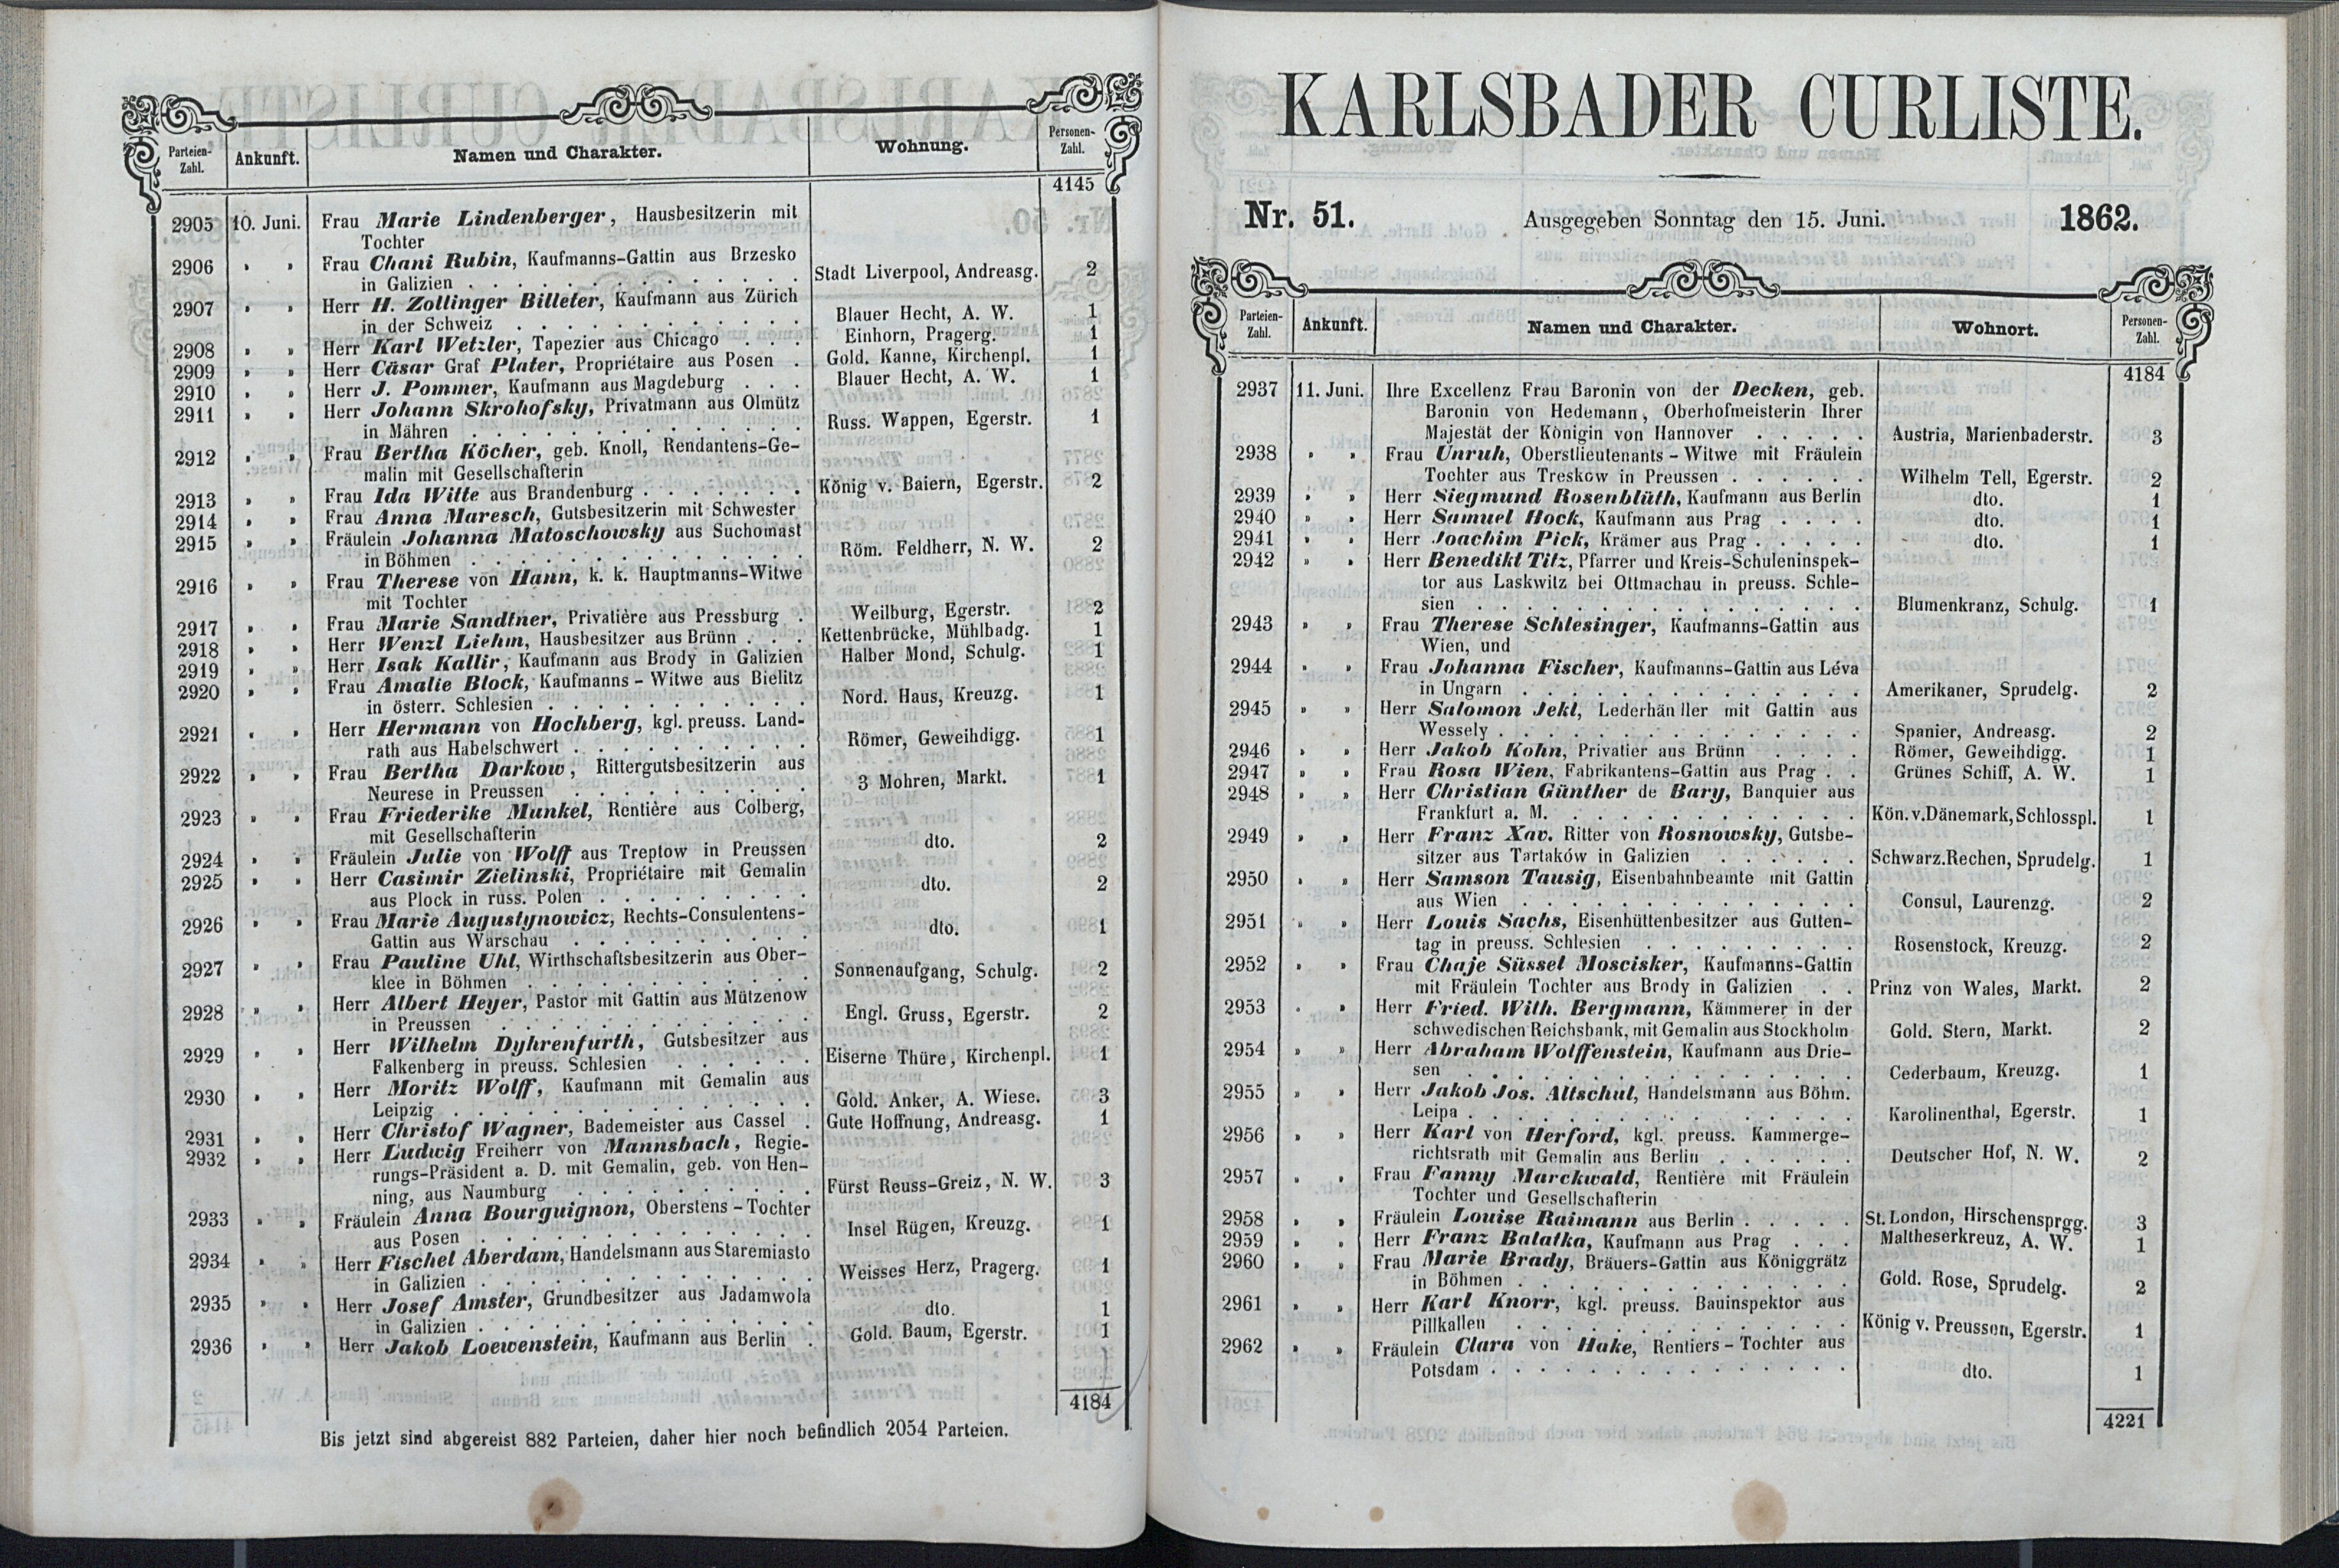 Parteien-Zahl. Ankunft. Namen und Charakter. Wohnung. Personen-Zahl.
4145
2905 10. Juni. Frau Marie Lindenberger, Hausbesitzerin mit
Tochter
2906 " " Frau Chani Rubin, Kaufmanns-Gattin aus Brzesko
in Galizien . . . Stadt Liverpool, Andreasg. 2
2907 " " Herr H. Zollinger Billeter, Kaufmann aus Zürich
in der Schweiz . . . Blauer Hecht, A. W. 1
2908 " " Herr Karl Wetzler, Tapezier aus Chicago . . . Einhorn, Pragerg. 1
2909 " " Herr Cäsar Graf Plater, Propriétaire aus Posen . Gold. Kanne, Kirchenpl. 1
2910 " " Herr J. Pommer, Kaufmann aus Magdeburg . . . Blauer Hecht, A. W. 1
2911 " " Herr Johann Skrohofsky, Privatmann aus Olmütz
in Mähren . . . Russ. Wappen, Egerstr. 1
2912 " " Frau Bertha Köcher, geb. Knoll, Rendantens-Ge-
malin mit Gesellschafterin
2913 " " Frau Ida Witte aus Brandenburg . . . König v. Baiern, Egerstr. 2
2914 " " Frau Anna Maresch, Gutsbesitzerin mit Schwester
2915 " " Fräulein Johanna Matoschowsky aus Suchomast
in Böhmen . . . Röm. Feldherr, N. W. 2
2916 " " Frau Therese von Hann, k. k. Hauptmanns-Witwe
mit Tochter Weilburg, Egerstr. 2
2917 " " Frau Marie Sandtner, Privatière aus Pressburg . Kettenbrücke, Mühlbadg. 1
2918 " " Herr Wenzl Liehm, Hausbesitzer aus Brünn . . . Halber Mond, Schulg. 1
2919 " " Herr Isak Kallir, Kaufmann aus Brody in Galizien
2920 " " Frau Amalie Block, Kaufmanns-Witwe aus Bielitz
in österr. Schlesien . . . Nord. Haus, Kreuzg. 1
2921 " " Herr Hermann von Hochberg, kgl. preuss. Land-
rath aus Habelschwert . . . Römer, Geweihdigg. 1
2922 " " Frau Bertha Darkow, Rittergutsbesitzerin aus
Neurese in Preussen . . . 3 Mohren, Markt. 1
2923 " " Frau Friederike Munkel, Rentière aus Colberg,
mit Gesellschafterin dto. 2
2924 " " Fräulein Julie von Wolff aus Treptow in Preussen
2925 " " Herr Casimir Zielinski, Propriétaire mit Gemalin dto. 2
aus Plock in russ. Polen . . .
2926 " " Frau Marie Augustynowicz, Rechts-Consulentens-
Gattin aus Warschau . . . dto. 1
2927 " " Frau Pauline Uhl, Wirthschaftsbesitzerin aus Ober-
klee in Böhmen . . . Sonnenaufgang, Schulg. 2
2928 " " Herr Albert Heyer, Pastor mit Gattin aus Mützenow
in Preussen . . . Engl. Gruss, Egerstr. 2
2929 " " Herr Wilhelm Dyhrenfurth, Gutsbesitzer aus
Falkenberg in preuss. Schlesien . . . Eiserne Thüre, Kirchenpl. 1
2930 " " Herr Moritz Wolff, Kaufmann mit Gemalin aus
Leipzig . . . Gold. Anker, A. Wiese. 3
2931 " " Herr Christof Wagner, Bademeister aus Cassel . Gute Hoffnung, Andreasg. 1
2932 " " Herr Ludwig Freiherr von Mannsbach, Regie-
rungs-Präsident a. D. mit Gemalin, geb. von Hen-
ning, aus Naumburg . . . Fürst Reuss-Greiz, N. W. 3
2933 " " Fräulein Anna Bourguignon, Oberstens-Tochter
aus Posen . . . Insel Rügen, Kreuzg. 1
2934 " " Herr Fischel Aberdam, Handelsmann aus Staremiasto
in Galizien . . . Weisses Herz, Pragerg. 1
2935 " " Herr Josef Amster, Grundbesitzer aus Jadamwola
in Galizien . . . dto. 1
2936 " " Herr Jakob Loewenstein, Kaufmann aus Berlin . Gold. Baum, Egerstr. 1
4184
Bis jetzt sind abgereist 882 Parteien, daher hier noch befindlich 2054 Parteien.
KARLSBADER CURLISTE.
Nr. 51. Ausgegeben Sonntag den 15. Juni. 1862.
Parteien-Zahl. Ankunft. Namen und Charakter. Wohnort. Personen-Zahl.
4184
2937 11. Juni. Ihre Excellenz Frau Baronin von der Decken, geb.
Baronin von Hedemann, Oberhofmeisterin Ihrer
Majestät der Königin von Hannover . . . Austria, Marienbaderstr. 3
2938 " " Frau Unruh, Oberstlieutenants-Witwe mit Fräulein
Tochter aus Treskow in Preussen . . . Wilhelm Tell, Egerstr. 2
2939 " " Herr Siegmund Rosenblüth, Kaufmann aus Berlin dto. 1
2940 " " Herr Samuel Hock, Kaufmann aus Prag . . . dto. 1
2941 " " Herr Joachim Pick, Krämer aus Prag . . . dto. 1
2942 " " Herr Benedikt Titz, Pfarrer und Kreis-Schuleninspek-
tor aus Laskwitz bei Ottmachau in preuss. Schle-
sien . . . Blumenkranz, Schulg. 1
2943 " " Frau Therese Schlesinger, Kaufmanns-Gattin aus
Wien, und
2944 " " Frau Johanna Fischer, Kaufmanns-Gattin aus Léva
in Ungarn . . . Amerikaner, Sprudelg. 2
2945 " " Herr Salomon Jekl, Lederhän ller mit Gattin aus
Wessely . . . Spanier, Andreasg. 2
2946 " " Herr Jakob Kohn, Privatier aus Brünn . . . Römer, Geweihdigg. 1
2947 " " Frau Rosa Wien, Fabrikantens-Gattin aus Prag . . Grünes Schiff, A. W. 1
2948 " " Herr Christian Günther de Bary, Banquier aus
Frankfurt a. M. . . . Kön. v. Dänemark, Schlosspl. 1
2949 " " Herr Franz Xav. Ritter von Rosnowsky, Gutsbe-
sitzer aus Tartaków in Galizien . . . Schwarz. Rechen, Sprudelg. 1
2950 " " Herr Samson Tausig, Eisenbahnbeamte mit Gattin
aus Wien . . . Consul, Laurenzg. 2
2951 " " Herr Louis Sachs, Eisenhüttenbesitzer aus Gutten-
tag in preuss. Schlesien . . . Rosenstock, Kreuzg. 2
2952 " " Frau Chaje Süssel Moscisker, Kaufmanns-Gattin
mit Fräulein Tochter aus Brody in Galizien . . Prinz von Wales, Markt. 2
2953 " " Herr Fried. With. Bergmann, Kämmerer in der
schwedischen Reichsbank, mit Gemalin aus Stockholm Gold. Stern, Markt. 2
2954 " " Herr Abraham Wolffenstein, Kaufmann aus Drie-
sen . . . Cederbaum, Kreuzg. 1
2955 " " Herr Jakob Jos. Altschul, Handelsmann aus Böhm.
Leipa . . . Karolinenthal, Egerstr. 1
2956 " " Herr Karl von Herford, kgl. preuss. Kammerge-
richtsrath mit Gemalin aus Berlin . . . Deutscher Hof, N. W. 2
2957 " " Frau Fanny Marckwald, Rentière mit Fräulein
Tochter und Gesellschafterin
2958 " " Fräulein Louise Raimann aus Berlin . . . St. London, Hirschensprgg. 3
2959 " " Herr Franz Balatka, Kaufmann aus Prag . . . Maltheserkreuz, A. W. 1
2960 " " Frau Marie Brady, Bräuers-Gattin aus Königgrätz
in Böhmen . . . Gold. Rose, Sprudelg. 2
2961 " " Herr Karl Knorr, kgl. preuss. Bauinspektor aus
Pillkallen . . . König v. Preussen, Egerstr. 1
2962 " " Fräulein Clara von Hake, Rentiers-Tochter aus
Potsdam . . . dto. 1
4221